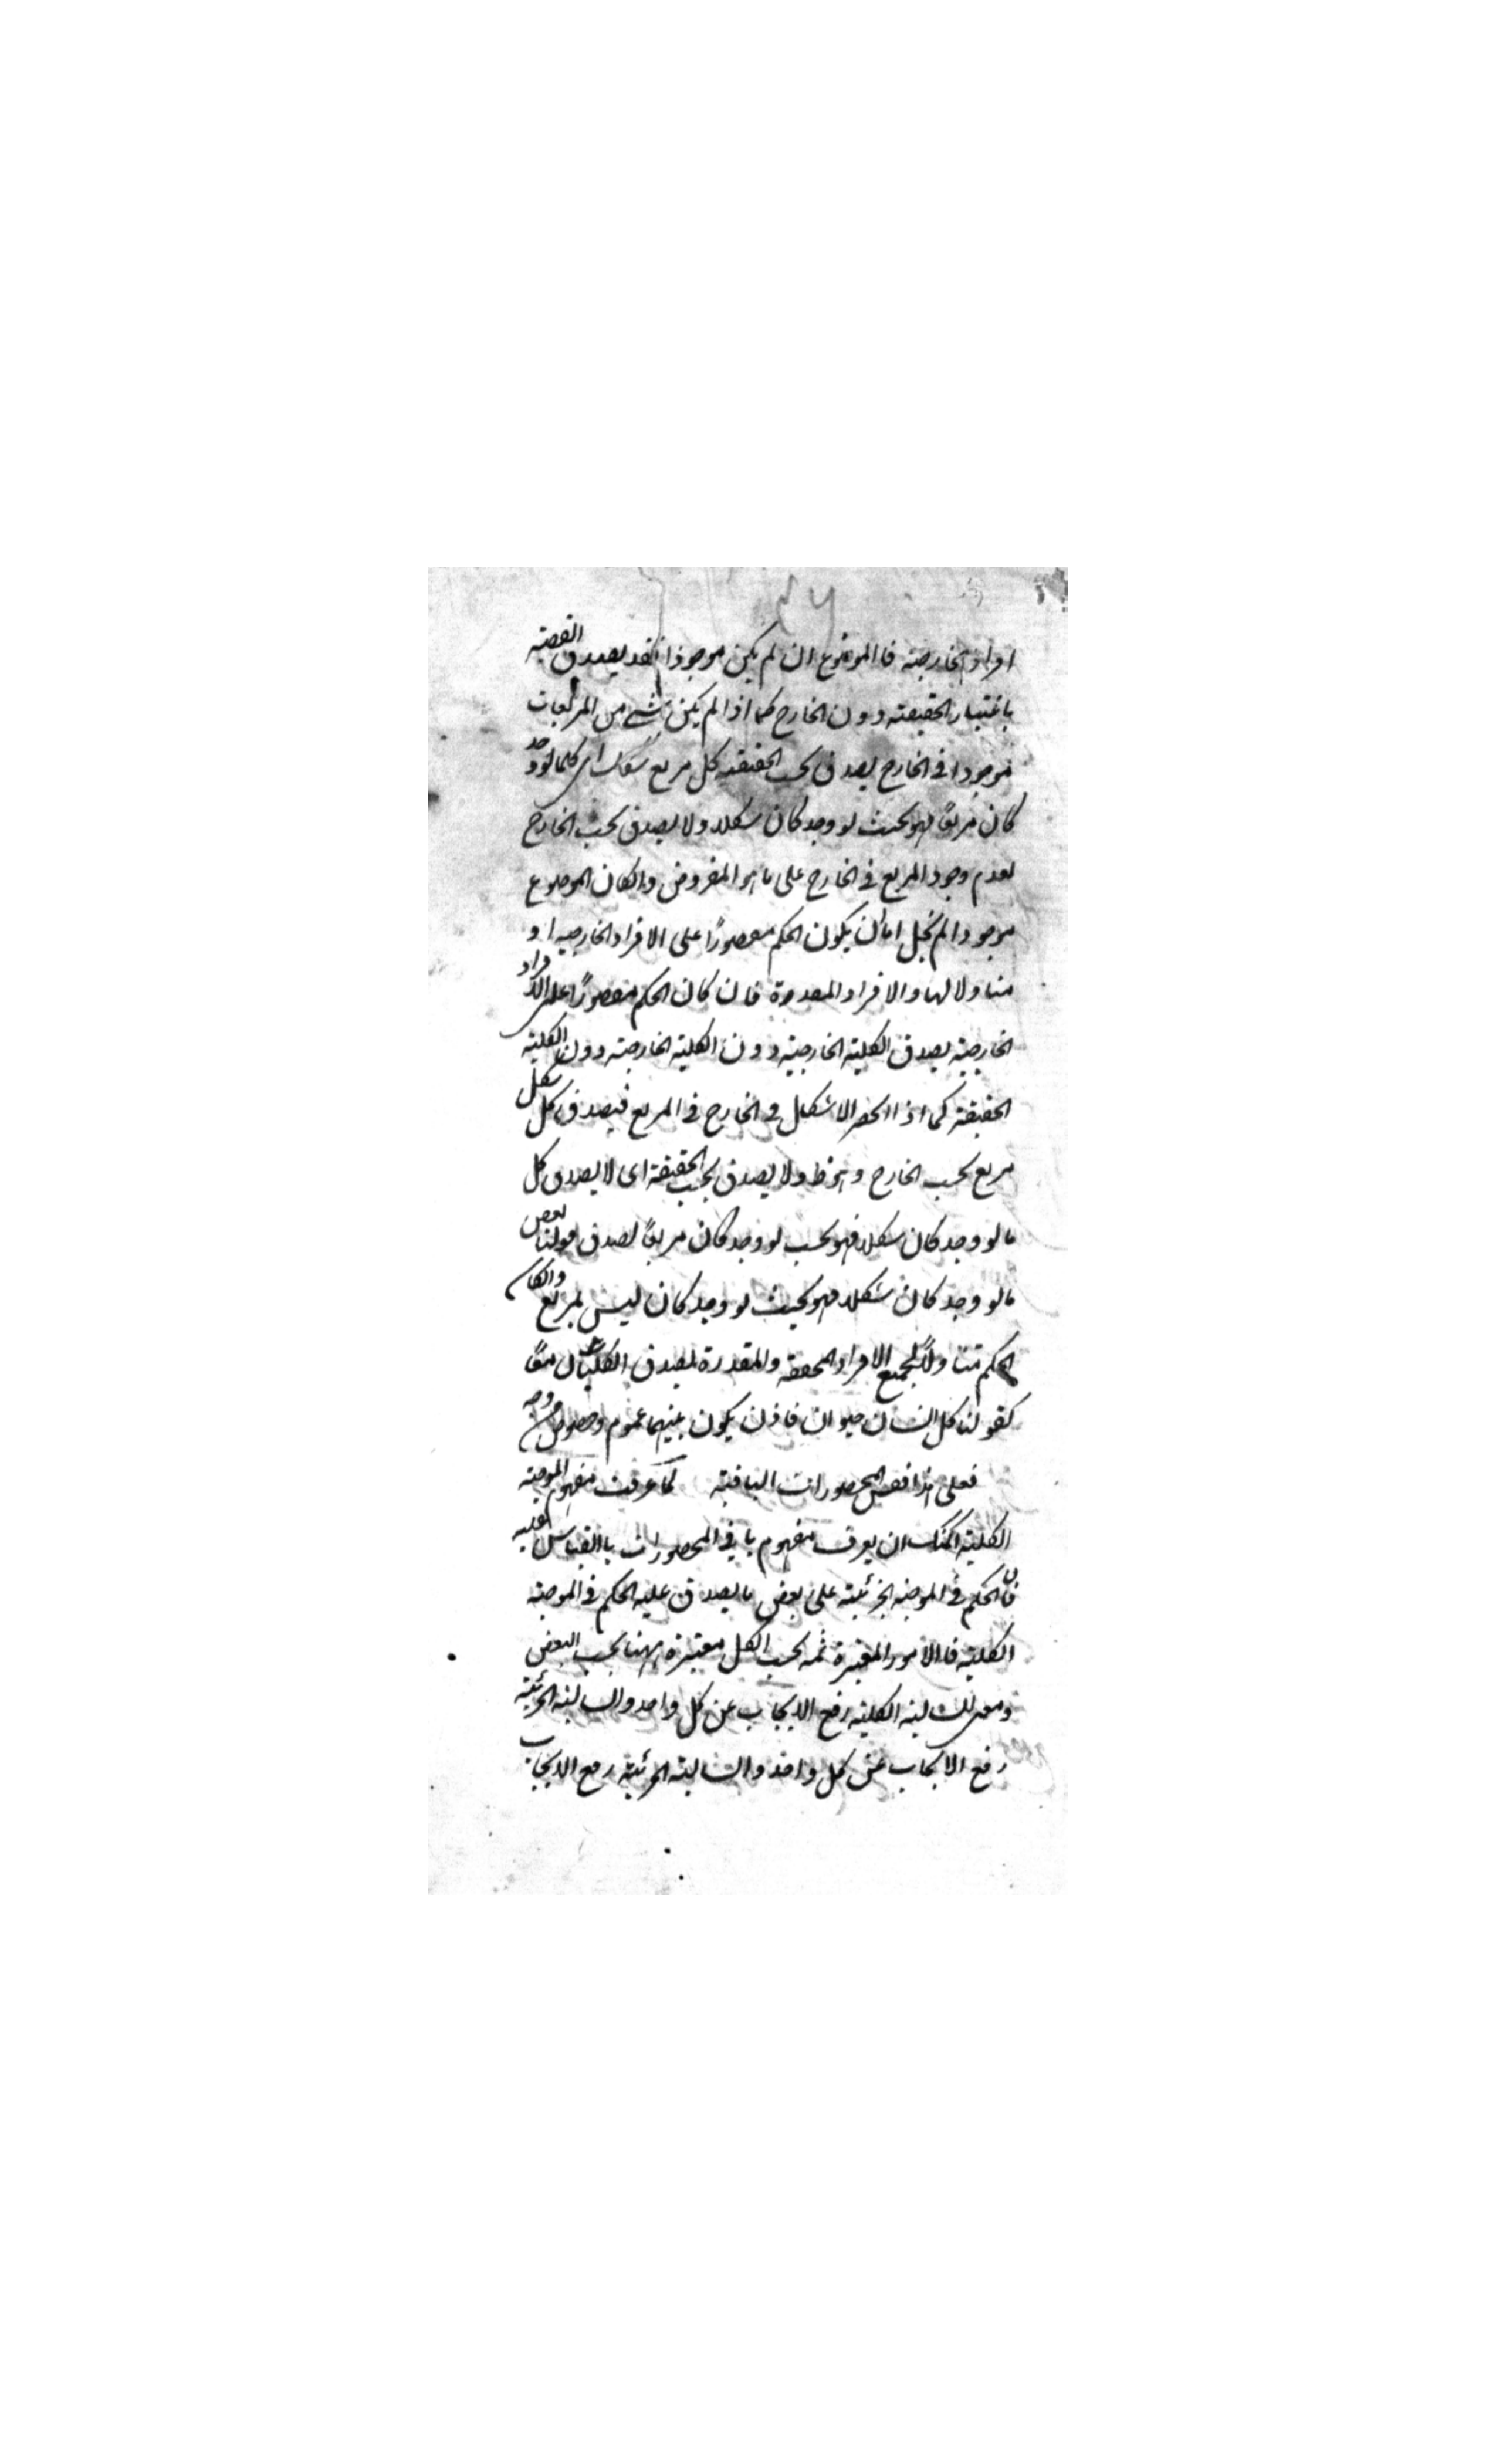 افراد الخارجية فالموضوع ان لم يكن موجودًا فقد يصدق القضية
باعتبار الحقيقة دون الخارج كما اذا لم يكن شئ من المربعات
موجودا في الخارج يصدق بحسب الحقيقة كل مربع شكل اى كلما لو وجد
كان مربعًا فهو بحيث لو وجد كان شكلا ولا يصدق بحسب الخارج
لعدم وجود المربع في الخارج على ما هو المفروض وان كان الموضوع
موجودا لم يخل اما ان يكون الحكم مقصورًا على الافراد الخارجيه او
متناولا لها والافراد المقدرة فان كان الحكم مقصورًا على الافراد
الخارجية يصدق الكلية الخارجية دون الكلية الخارجة دون الكلية
الحقيقة كما اذا انحصر الاشكال في الخارج في المربع فيصدق كل شكل
مربع بحسب الخارج وهو ظ ولا يصدق بحسب الحقيقة اى لا يصدق كل
ما لو وجد كان شكلا فهو بحسب لو وجد كان مربعًا لصدق قولنا بعض
ما لو وجد كان شكلا فهو بحيث لو وجد كان ليس بمربع وان كان
الحكم متناولاً لجميع الافراد المحققة والمقدرة يصدق الكليتان معًا
كقولنا كل انسان حيوان فاذن يكون بينهما عموم وخصوص من وجه
فعلى هذا فقس المحصورات الباقية لما عرفت مفهوم الموجبة
الكلية امكنك ان يعرف مفهوم باقي المحصورات باالقياس عليه
فان الحكم في الموجبة الجزئية على بعض ما يصدق عليه الحكم في الموجبة
الكلية فالامور المعتبرة ثمه بحسب الكل معتبرة ههنا بحسب البعض
ومعنى السالبة الكلية رفع الايجاب عن كل واحد والسالبة الجزئية
رفع الايجاب عن كل واحد والسالبة الجزئية رفع الايجاب